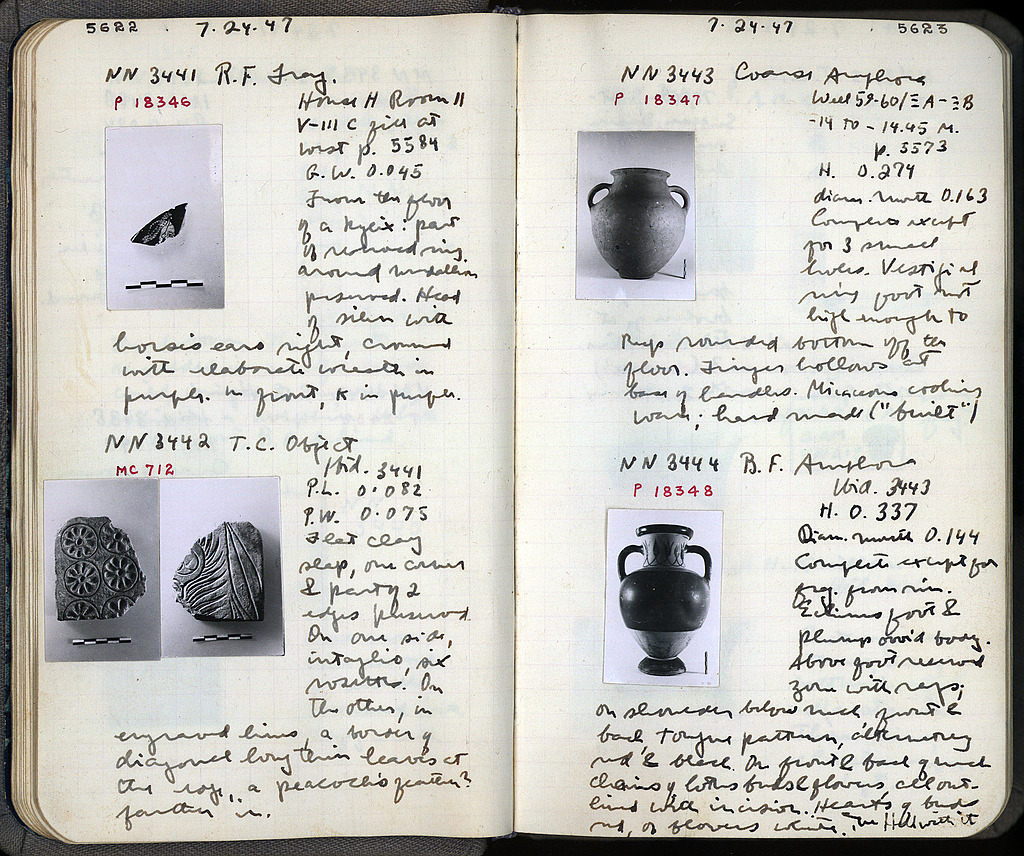 5622 . 7.24.47
NN 3441 R.F. Frag.
P 18346
House H Room II
V-III C fill at
west p. 5584
G.W. 0.045
From the floor
of a kylix: part
of reserved ring
around medallion
preserved. Head
of silen with
horse's ears right, crowned
with elaborate wreath in
purple. In front, K in purple.
NN 3442 T.C. Object
MC 712
Ibid. 3441
P.L. 0.082
P.W. 0.075
Flat clay
slap, one corner
& part of 2
edges preserved.
On one side,
intaglio, six
rosettes. On
the other, in
engraved lines, a border of
diagonal long thin leaves at
the edge, a peacock's feather?
farther in.
7.24.47 5623
NN 3443 Coarse Amphora
P 18347
Well 59-60/ΞA-ΞB
-14 to -14.45 M.
p. 5573
H. 0.274
diam. mouth 0.163
Complete except
for 3 small
holes. Vestigial
ring foot not
high enough to
keep rounded bottom off the
floor. Finger hollows at
base of handles. Micaceous cooking
ware; hand made ("built")
NN 3444 B.F. Amphora
P 18348
Ibid. 3443
H. 0.337
Diam. mouth 0.144
Complete except for
frag. from rim.
Echinus foot &
plump ovoid body.
Above foot reserved
zone with rays;
on shoulder below neck, front &
back, tongue pattern, alternating
red & black. On front & back of neck
chains of lotus buds & flowers all out-
lined with incision. Hearts of buds
red, of flowers white.